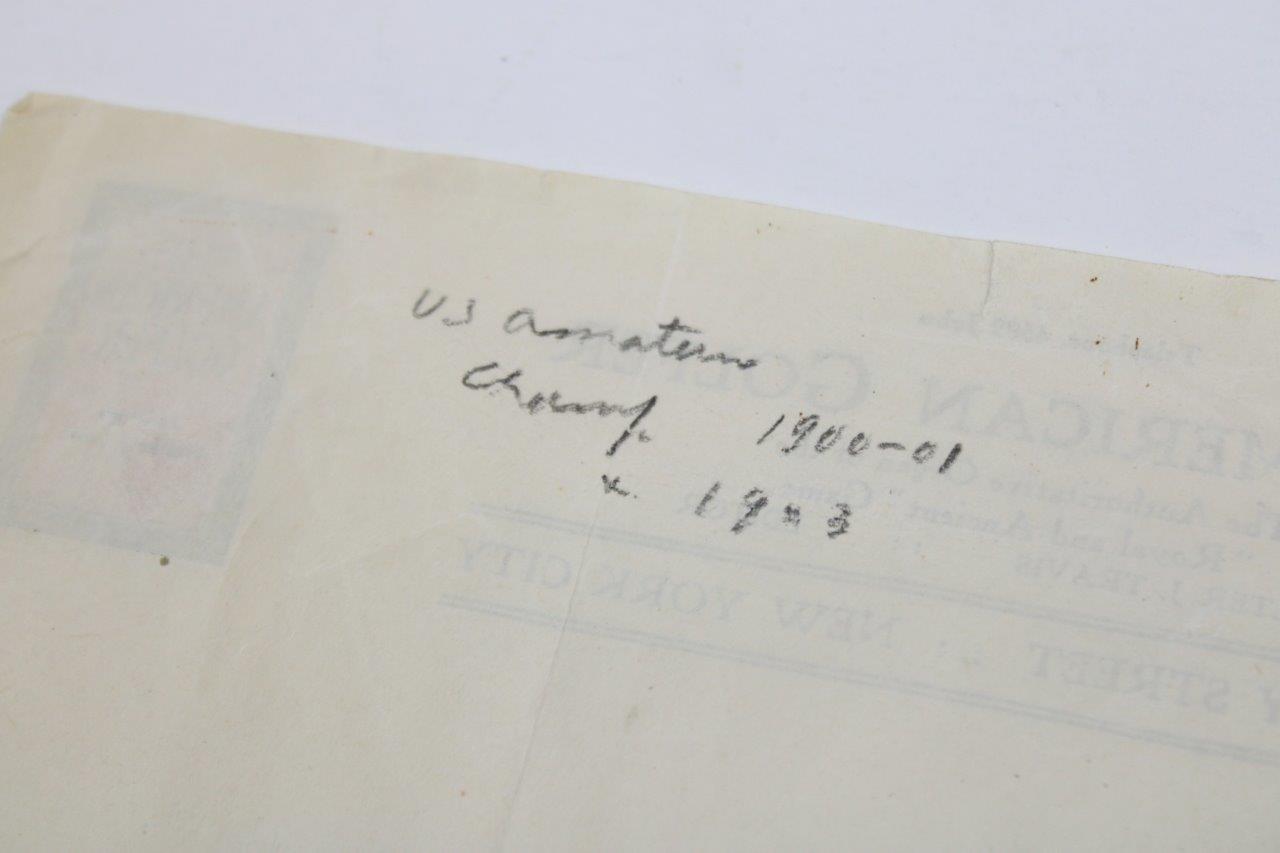 US Amateur
Champ. 1900-01
x 1903
Telephone
MERICAN GOLFER
The Authoritative
"Royal and Ancient" Game
TER J. TRAVIS
Y STREET : NEW YORK CITY